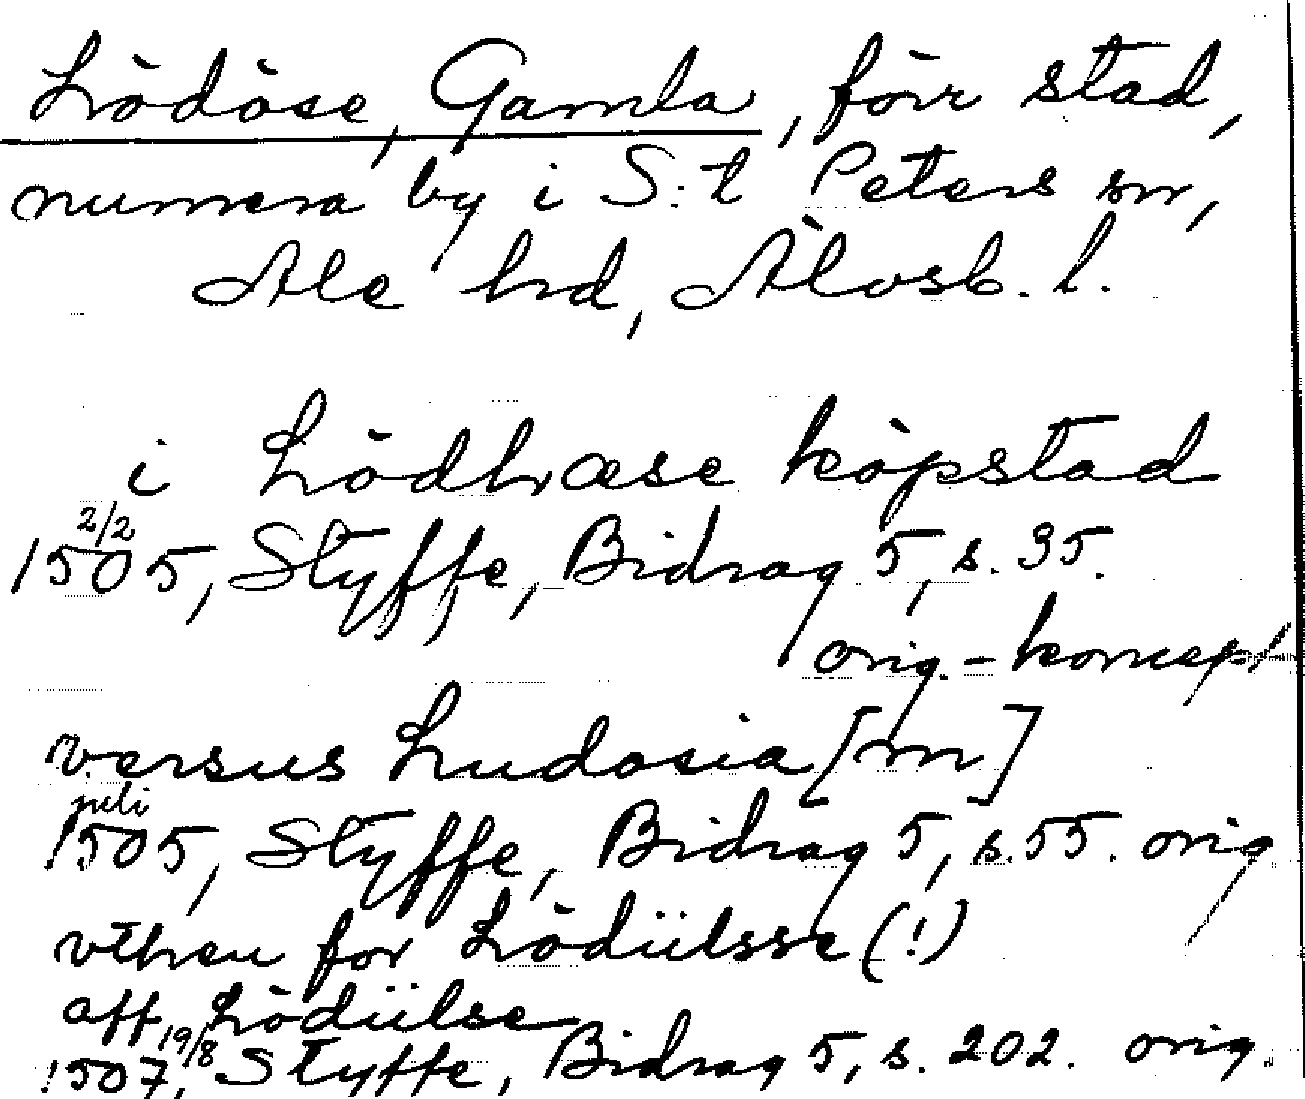 Lödöse, Gamla, förr stad,
numera by i S:t Peters sn,
Ale hd, Älvsb. l.
i Lödhæse köpstad
1505 2/2, Styffe, Bidrag 5, s. 35.
orig.-koncept
versus Ludosia[m]
1505 juli, Styffe, Bidrag 5, s. 55. orig
vthen for Lödiilsse (!)
aff Lödiilse
1507 19/8, Styffe, Bidrag 5, s. 202. orig.